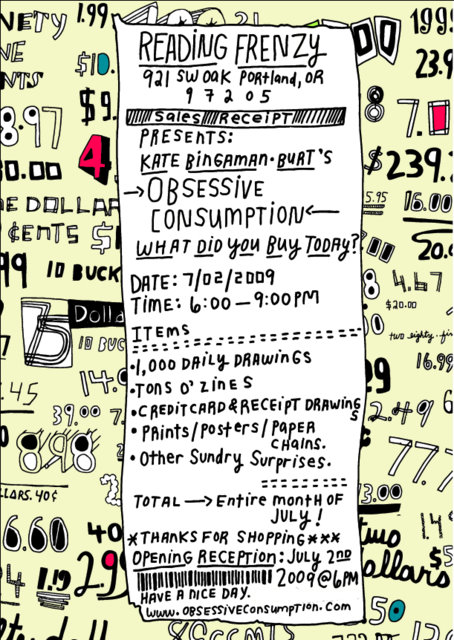 READING FRENZY
921 SW OAK PORTLAND, OR
97205
SALES RECEIPT
PRESENTS:
KATE BINGAMAN-BURT'S
→OBSESSIVE
CONSUMPTION←
WHAT DID YOU BUY TODAY?
DATE: 7/02/2009
TIME: 6:00 — 9:00PM
ITEMS
•1,000 DAILY DRAWINGS
•TONS O' ZINES
•CREDIT CARD & RECEIPT DRAWINGS
• Prints/Posters/PAPER
CHAINS.
• Other Sundry Surprises.
TOTAL → Entire month OF
JULY!
*THANKS FOR SHOPPING***
OPENING RECEPTION: JULY 2ND
2009@6PM
HAVE A NICE DAY.
WWW.OBSESSIVECONSUMPTION.COM
NETY
1.99
21
00
1999
NE
NTS
$10.
23.9
$9.
8
7.
8.97
4
$239.
0.00
5.95
16.00
E DOLLAR
¢ENTS
$1
20.0
99
10 BUCK
8
4.67
$20.00
75
Dolla
two eighty-fi
10 BUC
14.0
16.99
.45
39.00
7.
2.49
6
8.98
77.7
LLARS. 40¢
3.00
6.60
40
1.4
two
dollars
$5
4
1.19
2.9
.50
ty doll
89CENTS